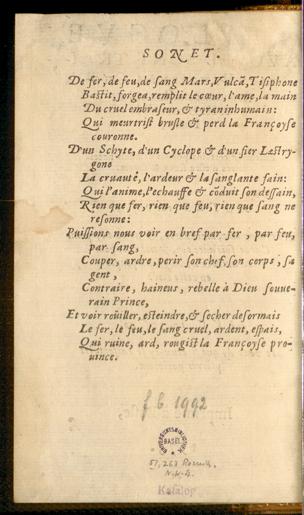 SONET.
De fer, de feu, de sang Mars, Vulcã, Tisiphone
Bastit, forgea, remplit le cœur, l'ame, la main
Du cruel embraseur, & tyran inhumain:
Qui meurtrist brusle & perd la Françoyse
couronne.
D'un Schyte, d'un Cyclope & d'un fier Lestry-
gone
La cruauté, l'ardeur & la sanglante fain:
Qui l'anime, l'echauffe & cõduit son dessain,
Rien que fer, rien que feu, rien que sang ne
resonne:
Puissions nous voir en bref par fer, par feu,
par sang,
Couper, ardre, perir son chef, son corps, sa
gent,
Contraire, haineus, rebelle à Dieu souue-
rain Prince,
Et voir roüiller, esteindre, & secher desormais
Le fer, le feu, le sang cruel, ardent, espais,
Qui ruine, ard, rougist la Françoyse pro-
uince.
f b 1992
BASEL
Katalog